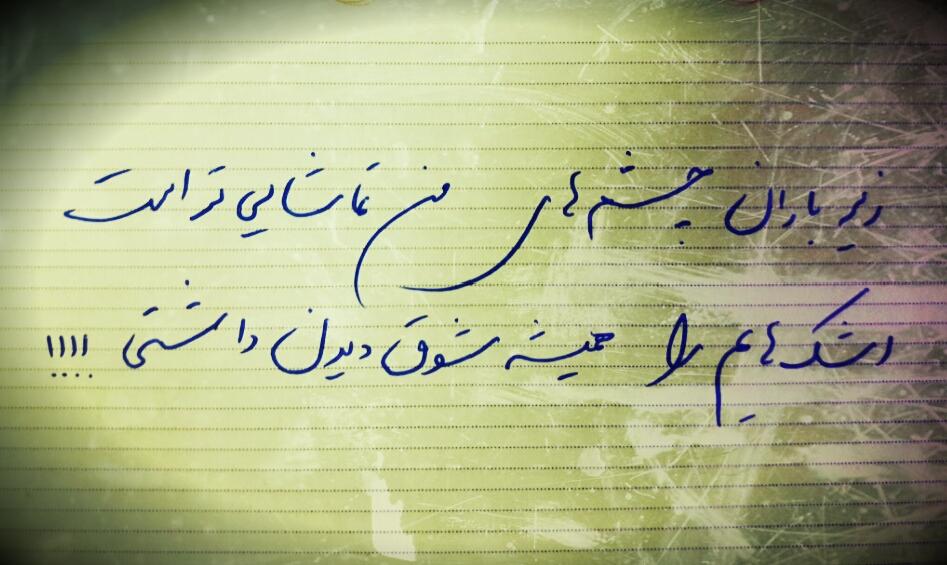 زیر باران چشم های من تماشایی تر است
اشک هایم را همیشه شوق دیدن داشتی !!!!